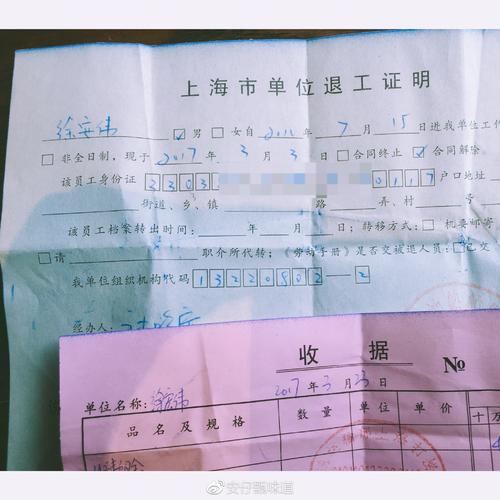 上海市单位退工证明
徐安伟 ☑男 □女自2011年7月15日进我单位工作
□非全日制,现于2017年3月3日 □合同终止 ☑合同解除
该员工身份证 2303 0117 户口地址
街道、乡、镇 路 弄、村 号
该员工档案转出时间: 年 月 日;转移方式:□机要邮寄
□请 职介所代转;《劳动手册》是否交被退人员:已交
我单位组织机构代码 13220802—2
经办人:
收据 №
单位名称:徐安伟 2017年3月23日
品名及规格 数量 单位 单价 十万
安仔甄味道